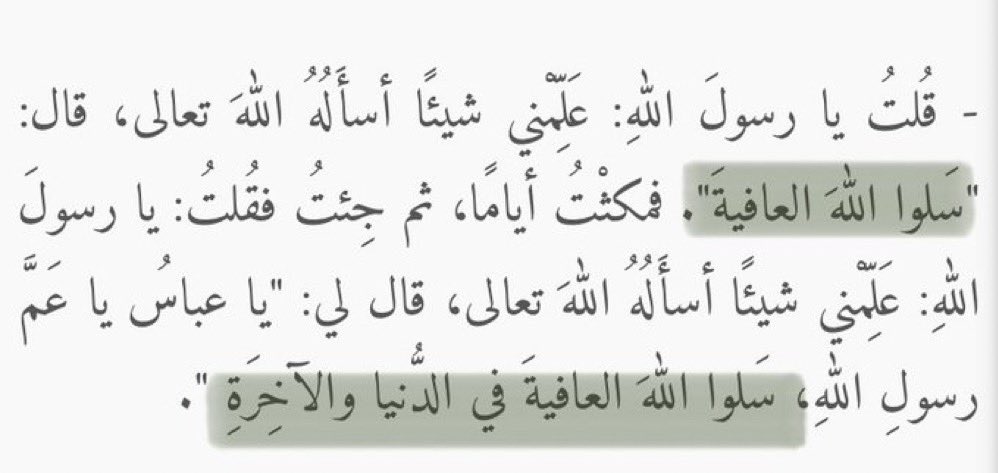 - قُلتُ يا رسولَ اللهِ: عَلِّمْني شيئًا أسأَلُهُ اللهَ تعالى، قال:
"سَلوا اللهَ العافيةَ". فمكثْتُ أيامًا، ثم جِئتُ فقُلتُ: يا رسولَ
اللهِ: عَلِّمْني شيئًا أسأَلُهُ اللهَ تعالى، قال لي: "يا عباسُ يا عَمَّ
رسولِ اللهِ، سَلوا اللهَ العافيةَ في الدُّنيا والآخِرَةِ".